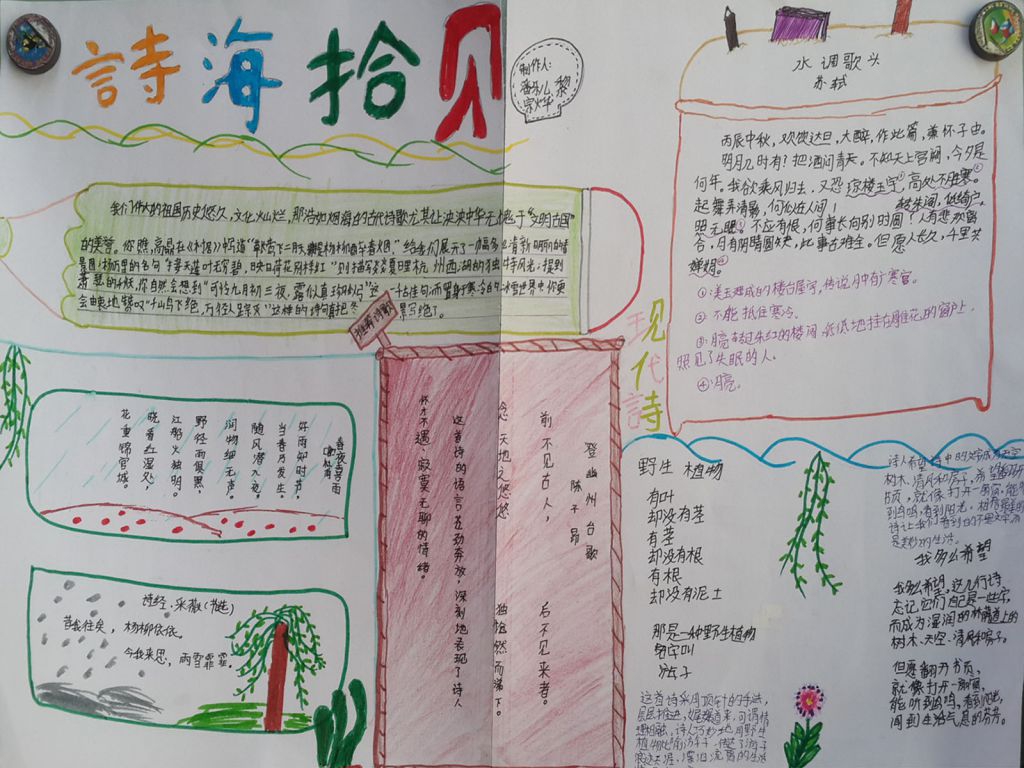 詩海拾贝
制作人:
黎
我们伟大的祖国历史悠久,文化灿烂,那浩如烟海的古代诗歌尤其让泱泱中华无愧于“文明古国”
的美誉。
给我们展开了一幅
景图;杨万里的名句“接天莲叶无穷碧,映日荷花别样红”则描写了夏日里杭州西湖的独特风光;提到
你自然会想到“可怜九月初三夜,露似真珠月似弓”这一千古佳句;而置身于寒冷的冰雪世界中你更
会由衷地赞叹“千山鸟飞绝,万径人踪灭”这样的诗句真把冬
景写绝了。
推荐诗歌
水调歌头
苏轼
丙辰中秋,欢饮达旦,大醉,作此篇,兼怀子由。
明月几时有?把酒问青天。不知天上宫阙,今夕是
何年。我欲乘风归去,又恐琼楼玉宇①,高处不胜寒②
起舞弄清影,何似在人间!转朱阁,低绮户,
照无眠③不应有恨,何事长向别时圆?人有悲欢离
合,月有阴晴圆缺,此事古难全。但愿人长久,千里共
婵娟。④
①:美玉砌成的楼台屋宇,传说月中有广寒宫。
②不能抵住寒冷。
③:月亮转过朱红的楼阁,低低地挂在雕花的窗户上,
照见了失眠的人。
④:月亮。
现代詩
春夜喜雨
好雨知时节,
当春乃发生。
随风潜入夜,
润物细无声。
野径云俱黑,
江船火独明。
晓看红湿处,
花重锦官城。
诗经·采薇(节选)
昔我往矣,杨柳依依。
今我来思,雨雪霏霏。
登幽州台歌
陈子昂
前不见古人,后不见来者。
念天地之悠悠,独怆然而涕下。
这首诗的语言苍劲奔放,深刻地表现了诗人
怀才不遇、寂寞无聊的情绪。
野生植物
有叶
却没有茎
有茎
却没有根
有根
却没有泥土
那是一种野生植物
名字叫
游子
这首诗采用顶针的手法,
层层推进,娓娓道来,可谓情
理相融,诗人巧妙地用野生
植物比喻游子,传达了游子
浪迹天涯、漂泊流离的生活
诗人希望诗中的文字成为天空
树木,清风和房子,希望翻开
书页,就像打开一扇窗,能听
到鸟鸣,看到阳光
诗让我们看到的不是文字而
是美妙的生活。
我多么希望
我多么希望,这几行诗
忘记它们自己是一些字,
而成为湿润的林荫道上的
树木、天空、清风和房子。
但愿翻开书页,
就像打开一扇窗,
能听到鸟鸣,看到阳光,
闻到生活气息的芬芳。